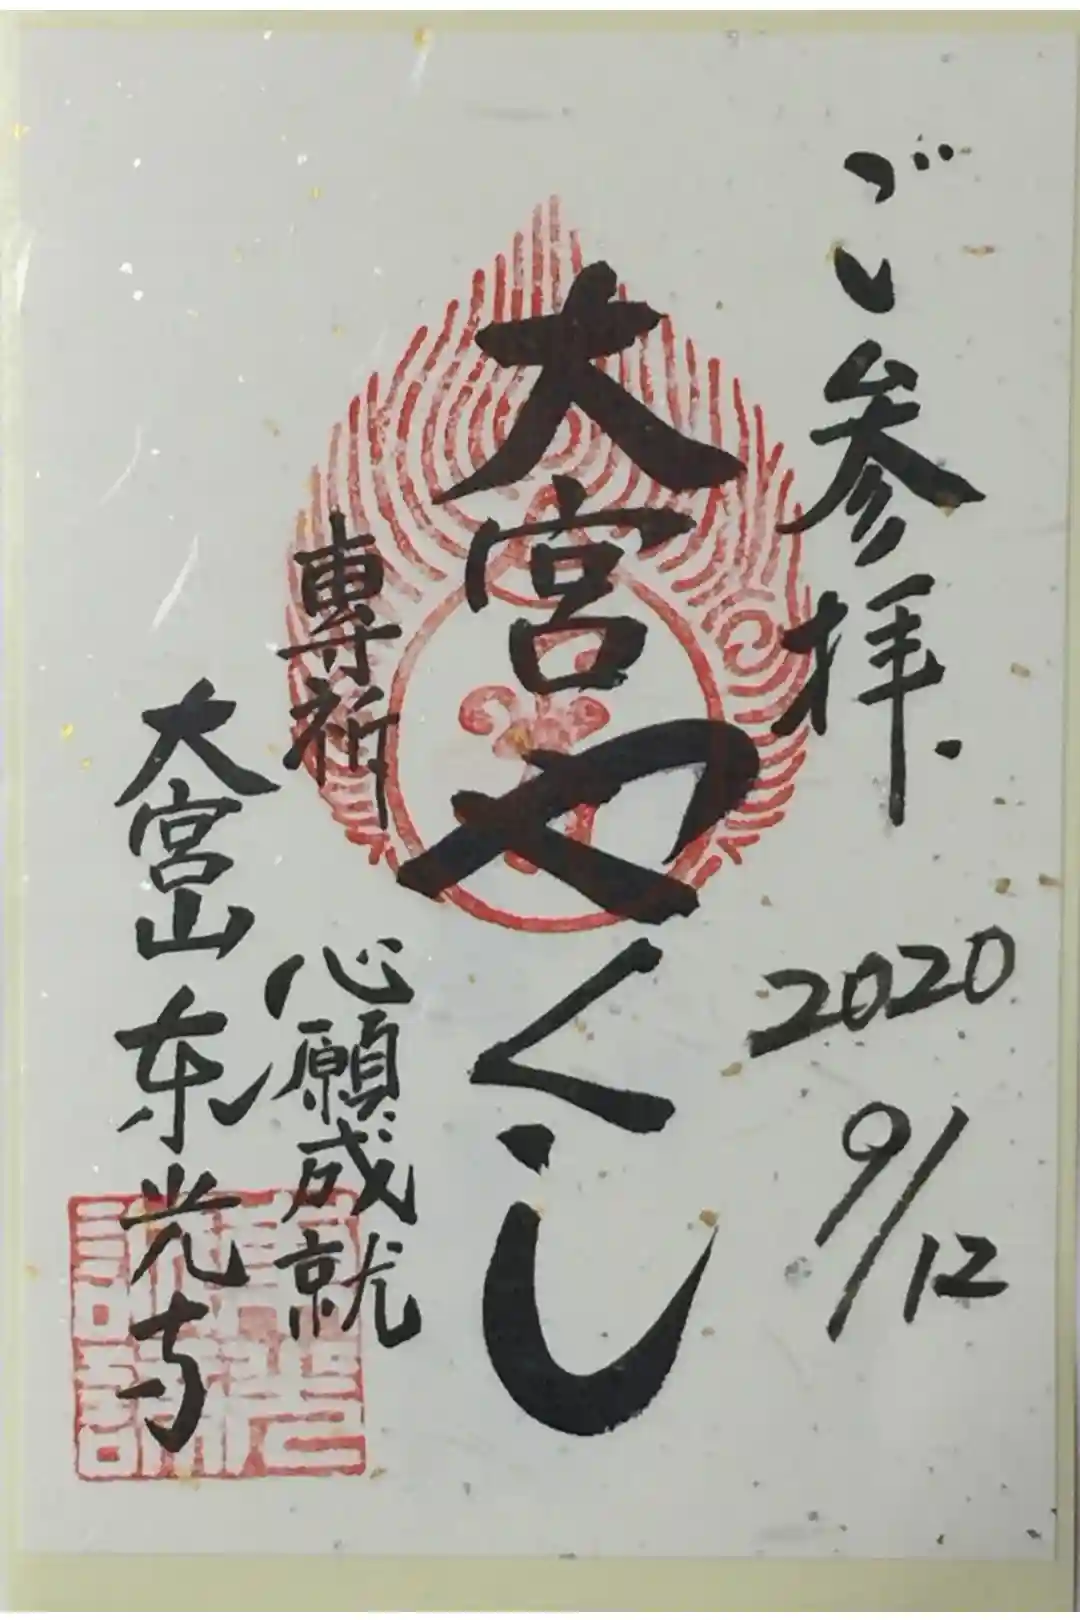 ご参拝
2020
9/12
大宮やくし
専祈
心願成就
大宮山東光寺